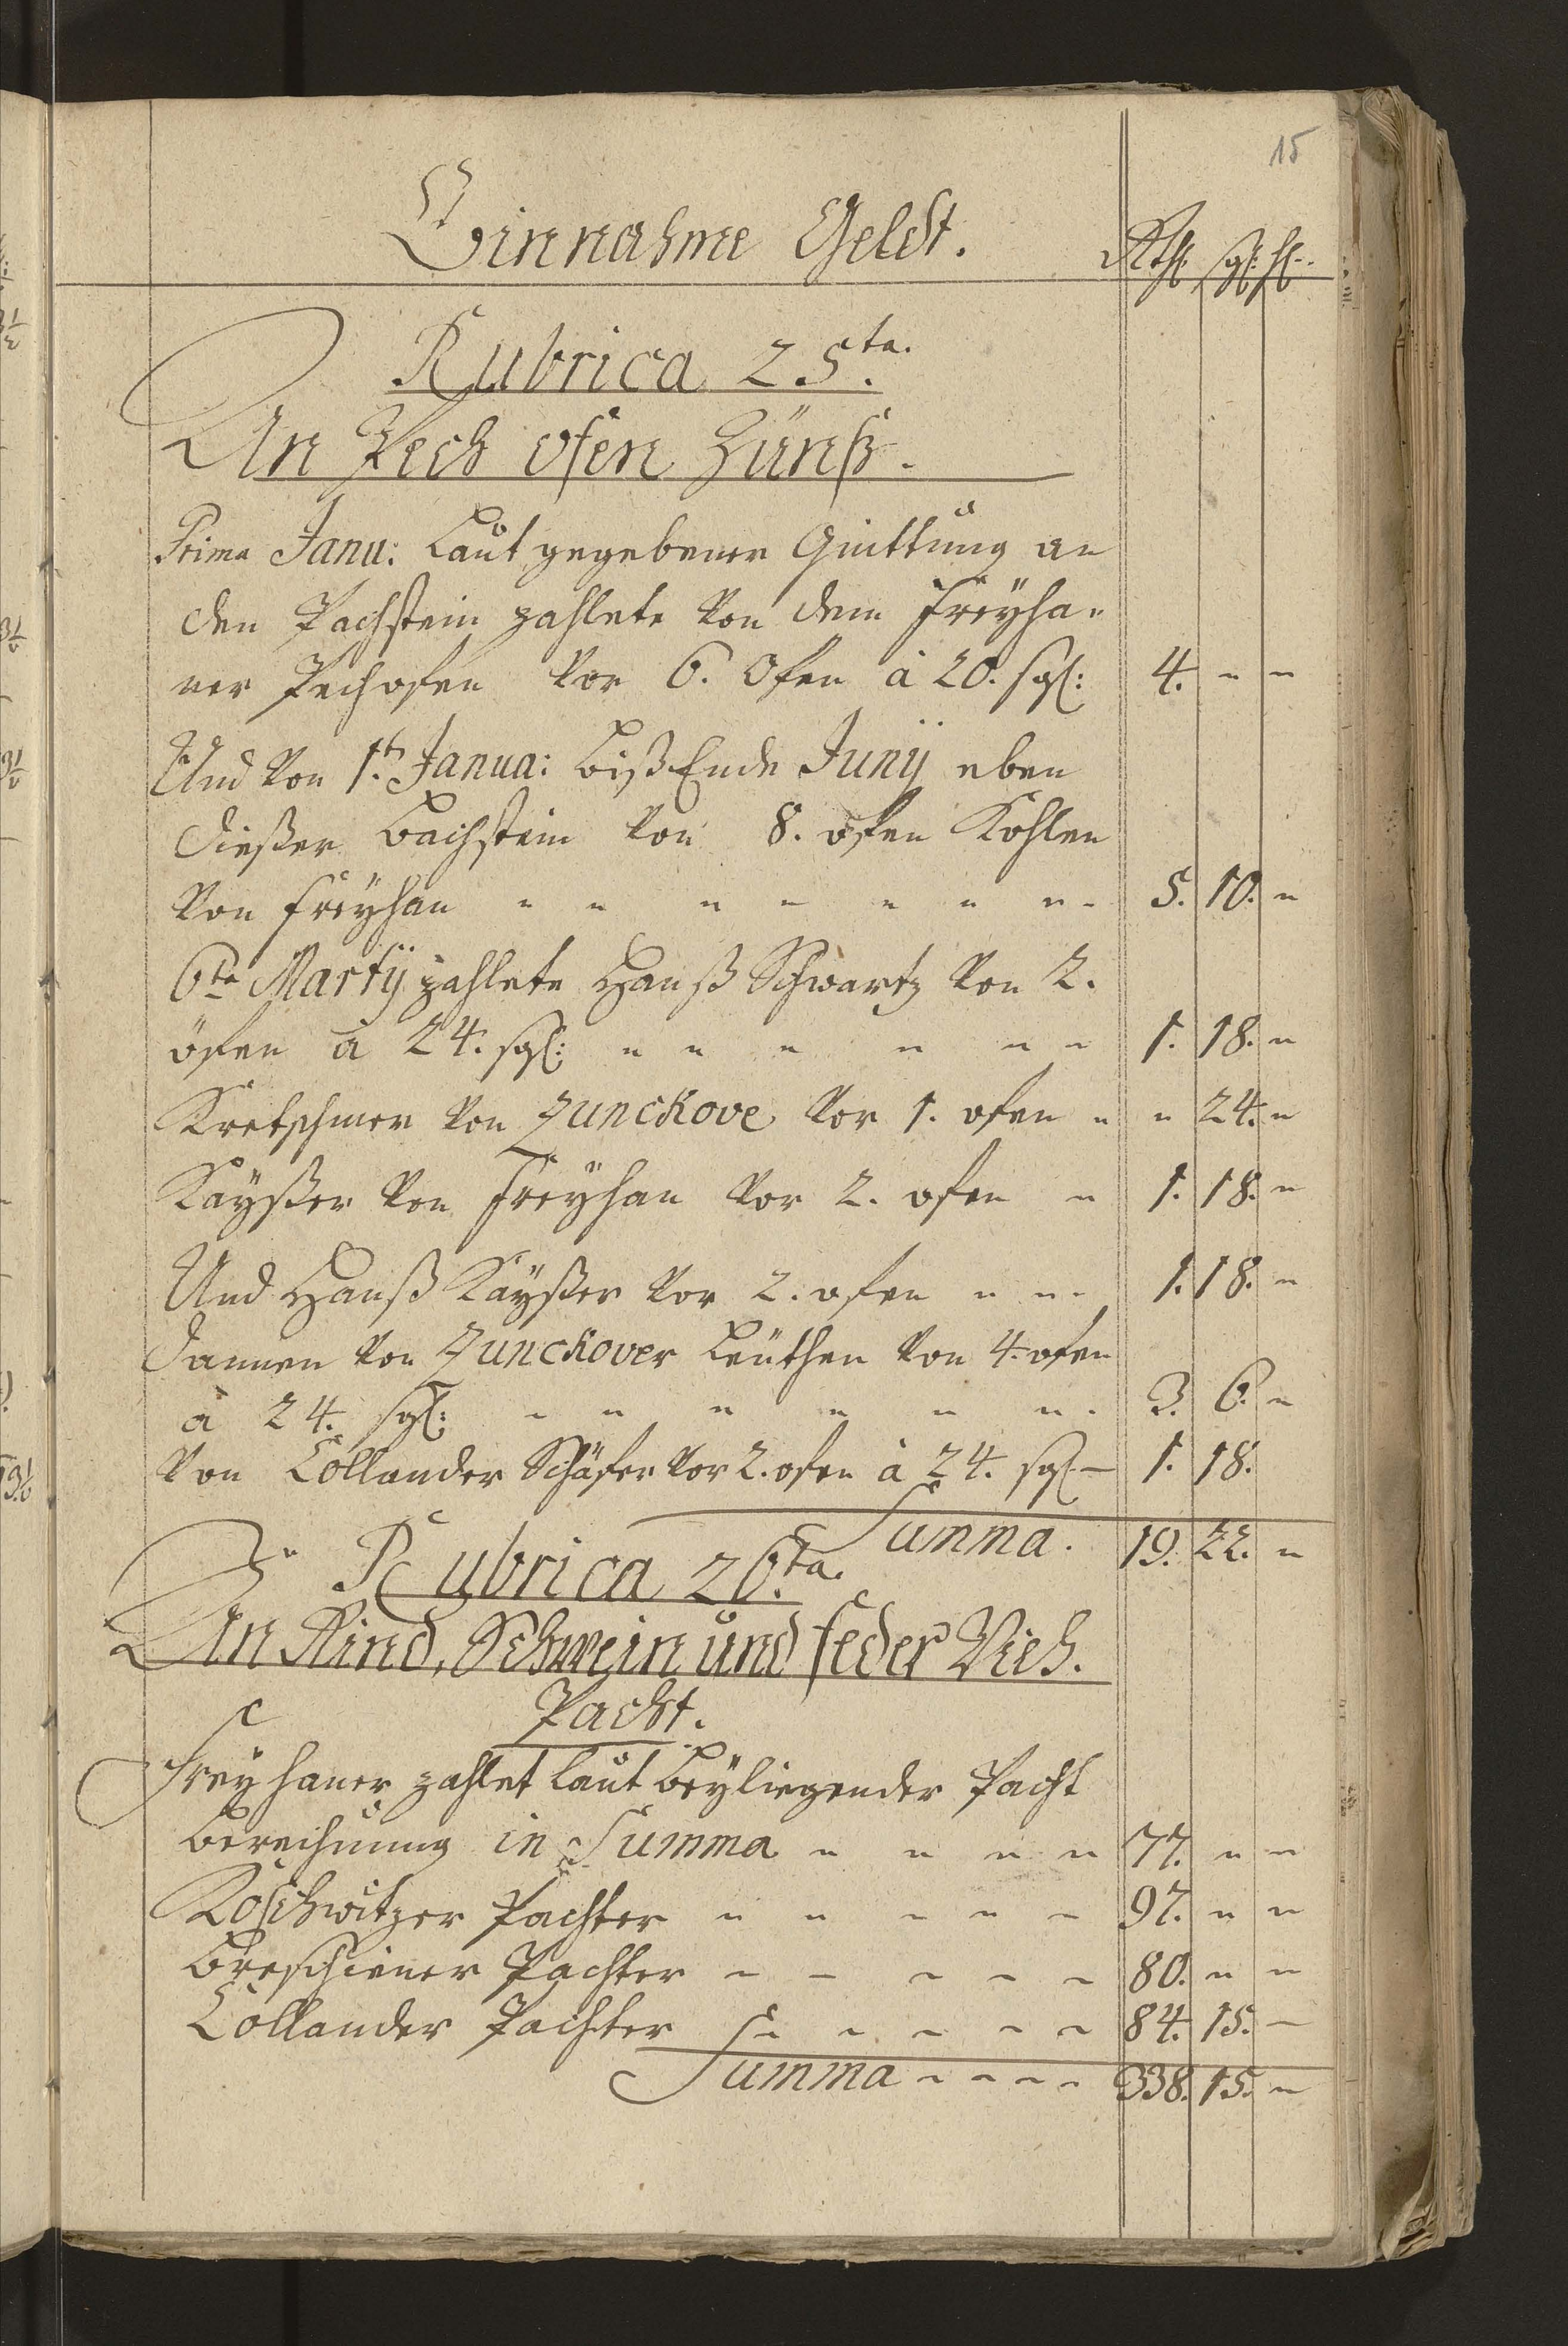 15
Einnahme Geldt. Rthl. sgl: hl.
Rubrica 25.ta.
An Pech ofen Zünß.
Prima Janu: Laut gegebener Quittung an
den Pachstein zahlete von dem Freyha-
ner Pechofen vor 6. Ofen à 20. sgl: 4. " "
Und von 1.t Janua: biß Ende Junij eben
dießer Bachstein von 8. ofen Kohlen
von Freyhan " " " " " " " " 5. 10. "
6te Martij zahlete Hanß Schwartz von 2.
öfen à 24. sgl: " " " " " " 1. 18. "
Kretschmer von Junckove vor 1. ofen " " 24. "
Kayßer von Freyhan vor 2. ofen " 1. 18. "
Und Hanß Kayßer vor 2. ofen " " " 1. 18. "
Dannen von Junckover Leuthen von 4. ofen
à 24. sgl: " " " " " " " 3. 6. "
Von Collander Schäfer vor 2. ofen à 24. sgl – 1. 18.
Summa. 19. 22. "
Rubrica 26.ta.
An Rind, Schwein und feder Vieh.
Pacht.
Freyhaner zahlet laut beyliegender Pacht
berechnung in Summa " " " " 77. " "
Koschwitzer Pachter " " " " " 97. " "
Breschiner Pachter " " " " " 80. " "
Collander Pachter " " " " " 84. 15. –
Summa " " " " 338. 15. "